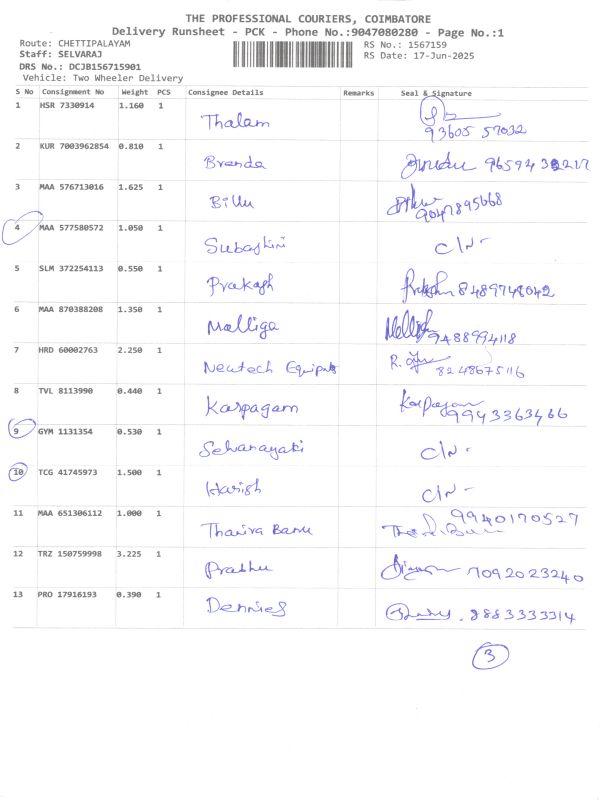 THE PROFESSIONAL COURIERS, COIMBATORE
Delivery Runsheet - PCK - Phone No.:9047080280 - Page No.:1
Route: CHETTIPALAYAM RS No.: 1567159
Staff: SELVARAJ RS Date: 17-Jun-2025
DRS No.: DCJB156715901
Vehicle: Two Wheeler Delivery
S No Consignment No Weight PCS Consignee Details Remarks Seal & Signature
1 HSR 7330914 1.160 1 Thalam 93605 57032
2 KUR 7003962854 0.810 1 Brenda
3 MAA 576713016 1.625 1 Billu 9047895668
4 MAA 577580572 1.050 1 Subashini C/N -
5 SLM 372254113 0.550 1 Prakash 8489748042
6 MAA 870388208 1.350 1 Malliga Mallig 9488994118
7 HRD 60002763 2.250 1 Newtech Equipats 8248675116
8 TVL 8113990 0.440 1 Karpagam Karpagam 9943363466
9 GYM 1131354 0.530 1 Selvanayaki C/N -
10 TCG 41745973 1.500 1 Harish C/N -
11 MAA 651306112 1.000 1 Thariva Banu 9940170527
12 TRZ 150759998 3.225 1 Prabhu 7092023240
13 PRO 17916193 0.390 1 Dennies 8883333314
3